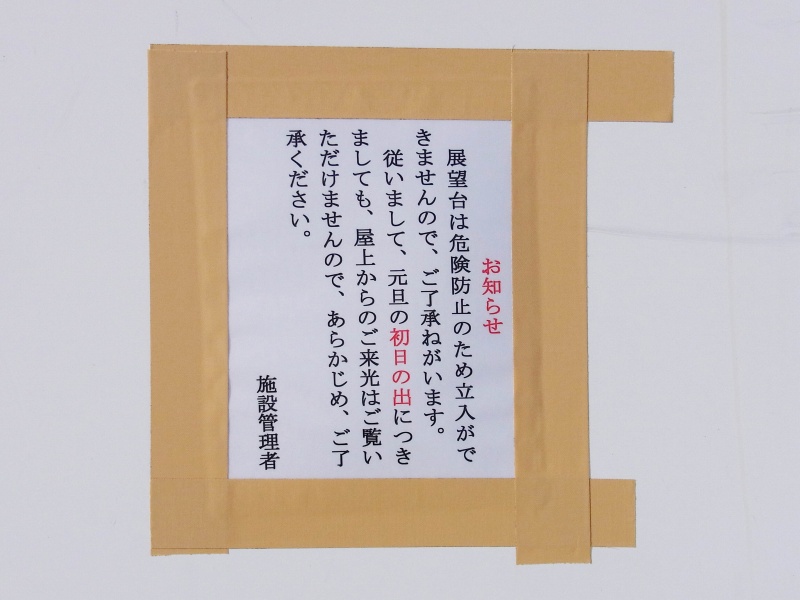 お知らせ
展望台は危険防止のため立入がで
きませんので、ご了承ねがいます。
従いまして、元旦の初日の出につき
ましても、屋上からのご来光はご覧い
ただけませんので、あらかじめ、ご了
承ください。
施設管理者